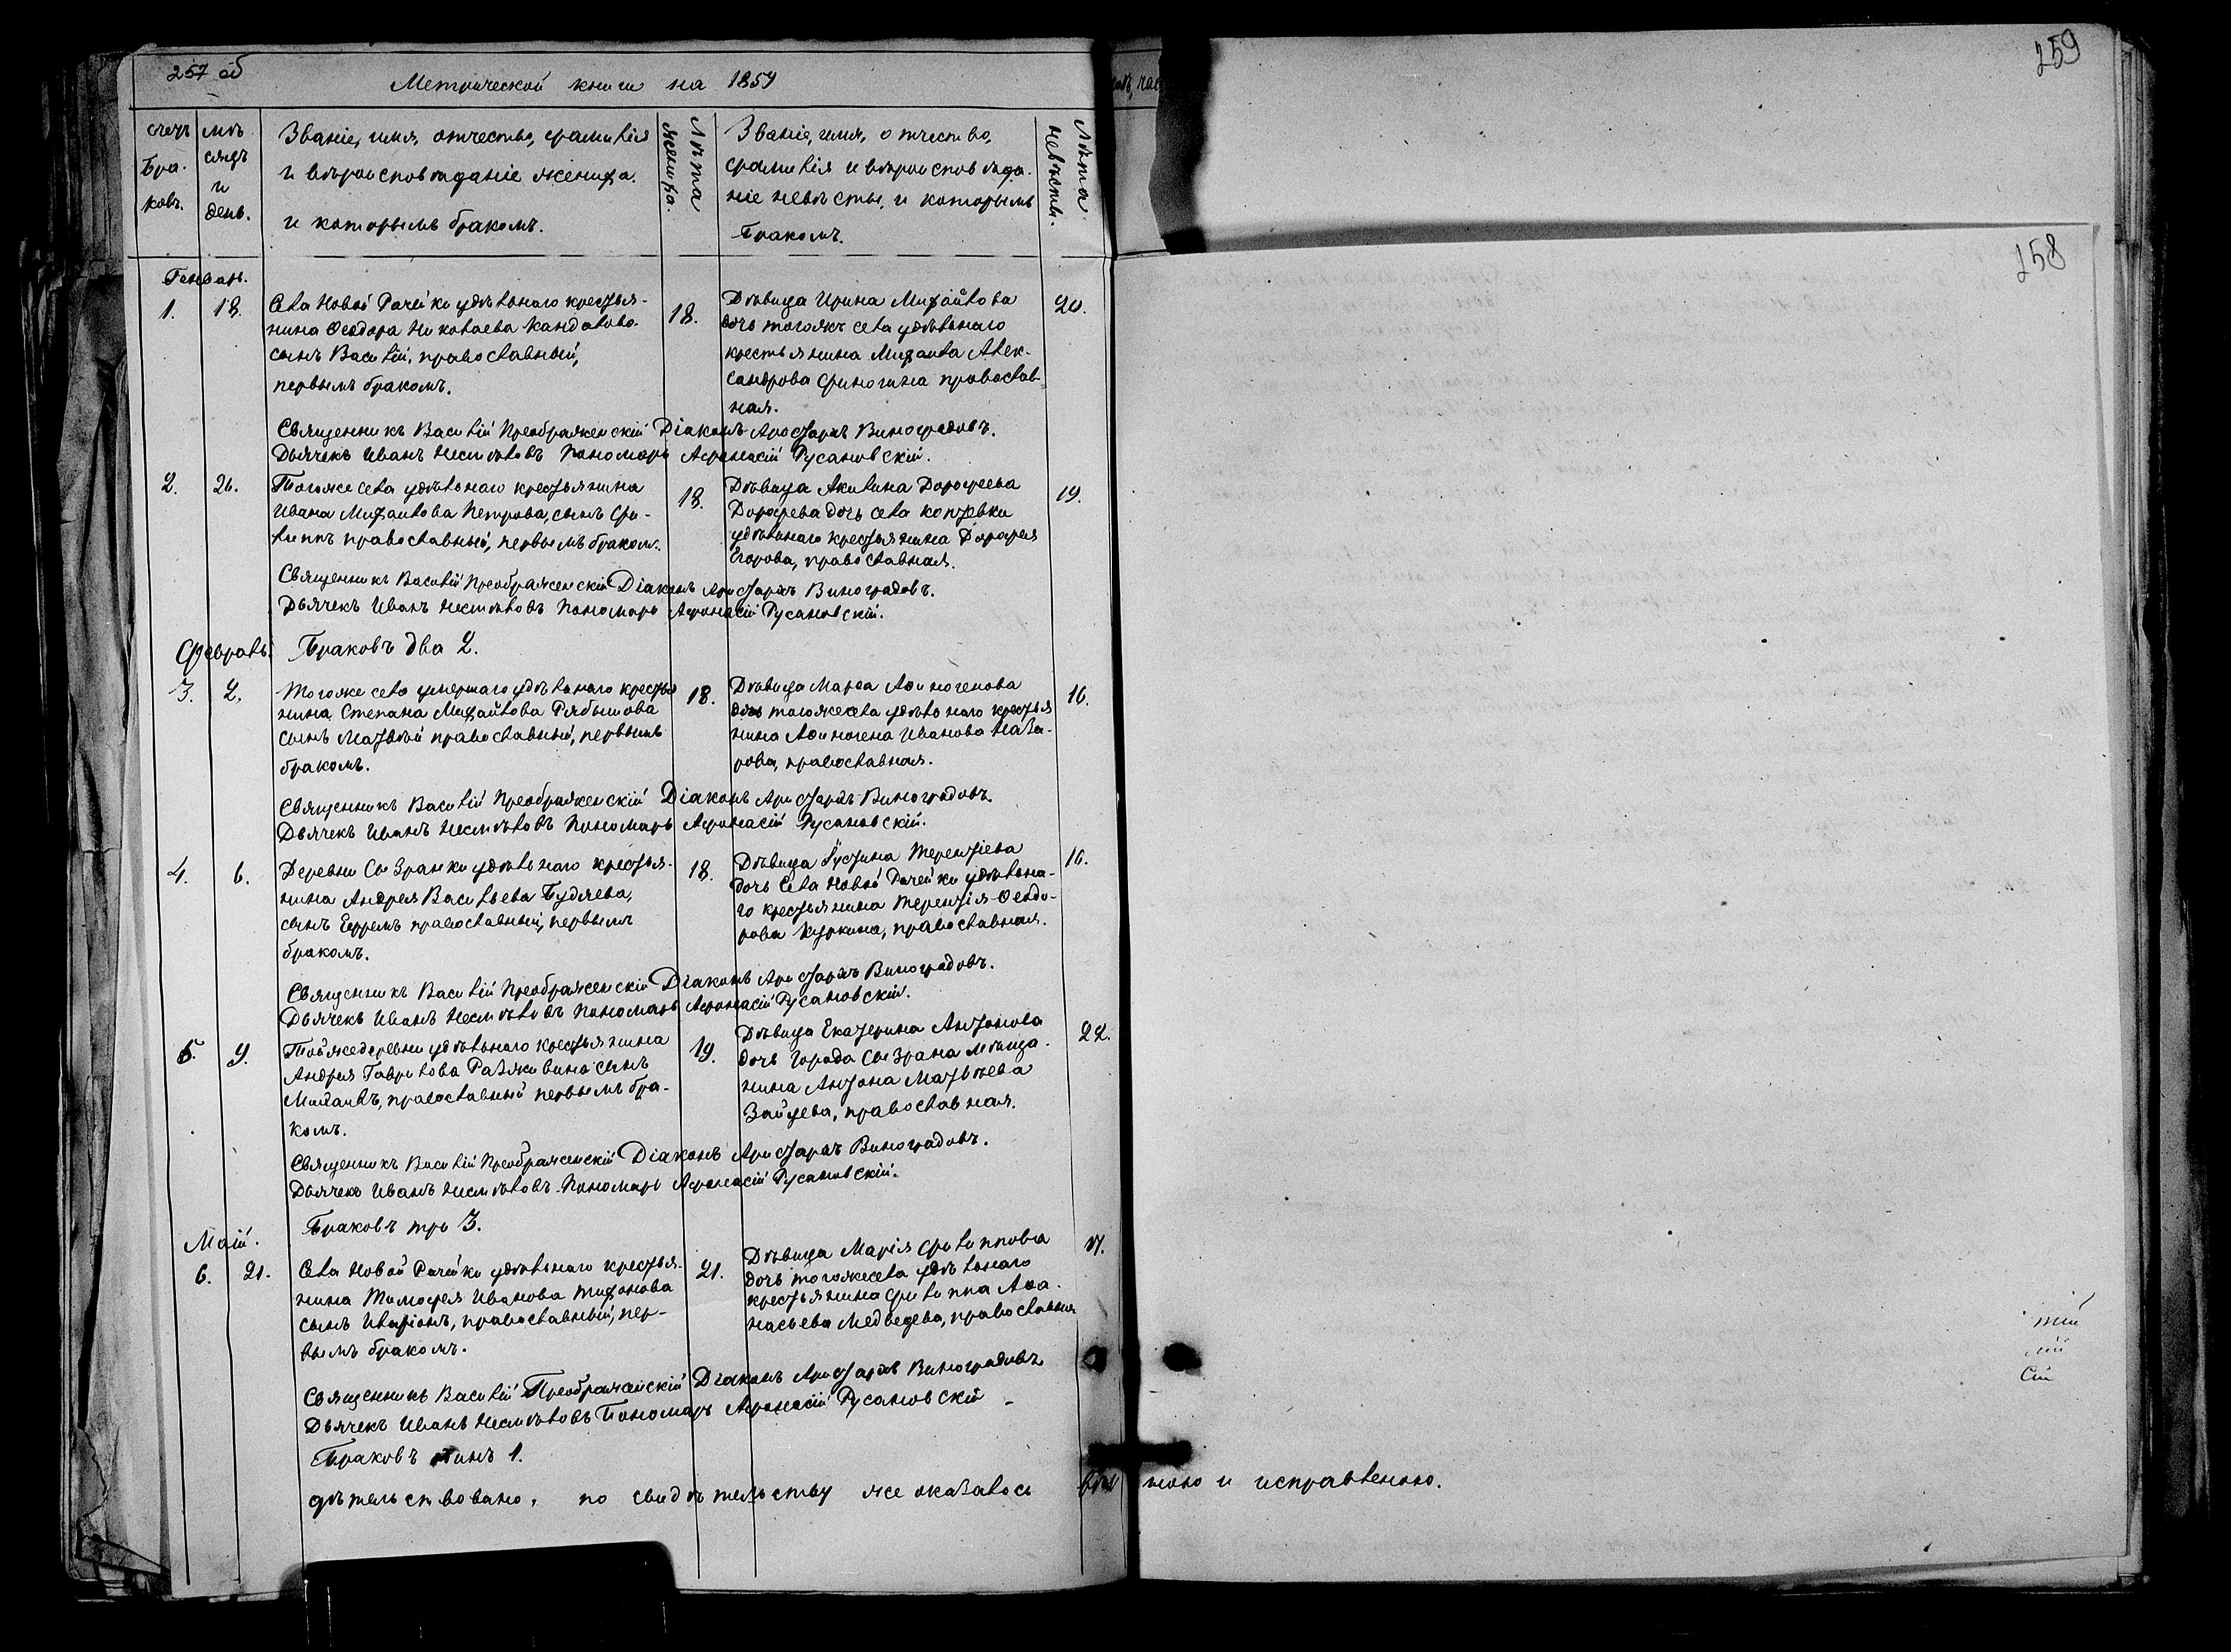 257 об
Метрической книги на 1859
259
258
счетъ браковъ.
мѣсяцъ и день.
Званіе, имя, отчество, фамилія
и вѣроисповѣданіе жениха.
и которымъ бракомъ.
Лѣта жениха.
Званіе, имя, отчество,
фамилія и вѣроисповѣда-
ніе невѣсты, и которымъ
бракомъ.
Лѣта невѣсты.
Генварь.
1. 18.
Села Новой Рачейки удѣльнаго крестья-
нина Ѳеодора Николаева Кандалова
сынъ Василій, православный,
первымъ бракомъ.
18.
Дѣвица Ирина Михайлова
дочь тогожъ села удѣльнаго
крестьянина Михаила Алек-
сандрова Финогина православ-
ная.
20.
Священникъ Василій Преображенскій Діаконъ Аристархъ Виноградовъ.
Дьячекъ Иванъ Несмѣловъ Пономарь Афонасій Русановскій.
2. 26.
Тогоже села удѣльнаго крестьянина
Ивана Михаилова Петрова, сынъ Фи-
липпъ православный, первымъ браком.
18.
Дѣвица Акилина Дорофеева
Дорофева дочь села Коптевки
удѣльнаго крестьянина Дорофея
Егорова, православная.
19.
Священникъ Василій Преображенскій Діаконъ Аристархъ Виноградовъ.
Дьячекъ Иванъ Несмѣловъ Пономарь Афонасій Русановскій.
Февраль. Браковъ два 2.
3. 2.
Тогоже села умершаго удѣльнаго крестья
нина Степана Михайлова Рябышова
сынъ Матвѣй православный, первымъ
бракомъ.
18.
Дѣвица Марѳа Аѳиногенова
дочь тогожесела удѣльнаго крестья
нина Аѳиногена Иванова Наза-
рова, православная.
16.
Священникъ Василій Преображенскій Діаконъ Аристархъ Виноградовъ.
Дьячекъ Иванъ Несмѣловъ Пономарь Афонасій Русановскій.
4. 6.
Деревни Сызранки удѣльнаго крестья-
нина Андрея Васильева Будяева,
сынъ Ефремъ православный, первымъ
бракомъ.
18.
Дѣвица Густина Терентіева
дочь Села Новой Рачейки удѣльна-
го крестьянина Терентія Ѳеодо-
рова Куркина, православная.
16.
Священникъ Василій Преображенскій Діаконъ Аристархъ Виноградовъ.
Дьячекъ Иванъ Несмѣловъ Пономарь Афонасій Русановскій.
5. 9.
Тойжедеревни удѣльнаго крестьянина
Андрея Гаврилова сынъ
Михаилъ, православный первымъ бра-
комъ.
19.
Дѣвица Екатерина Антонова
дочь города Сызрана мѣща-
нина Антона Матвѣева
Зайцева, православная.
22.
Священникъ Василій Преображенскій Діаконъ Аристархъ Виноградовъ.
Дьячекъ Иванъ Несмѣловъ Пономарь Афонасій Русановскій.
Браковъ три 3.
Маій.
6. 21.
Села Новой Рачейки удѣльнаго крестья-
нина Тимофея Иванова Тихонова
сынъ Иларіонъ, православный, пер-
вымъ бракомъ.
21.
Дѣвица Марія Филиппова
дочь тогожесела удѣльнаго
крестьянина Филиппа Аѳа-
насьева Медведева, православная
Священникъ Василій Преображенскій Діаконъ Аристархъ Виноградовъ
Дьячекъ Иванъ Несмѣловъ Пономарь Афонасій Русановскій
Браковъ одинъ 1.
дѣтельствовано, по свидѣтельству же оказалось вѣрною и исправленою.